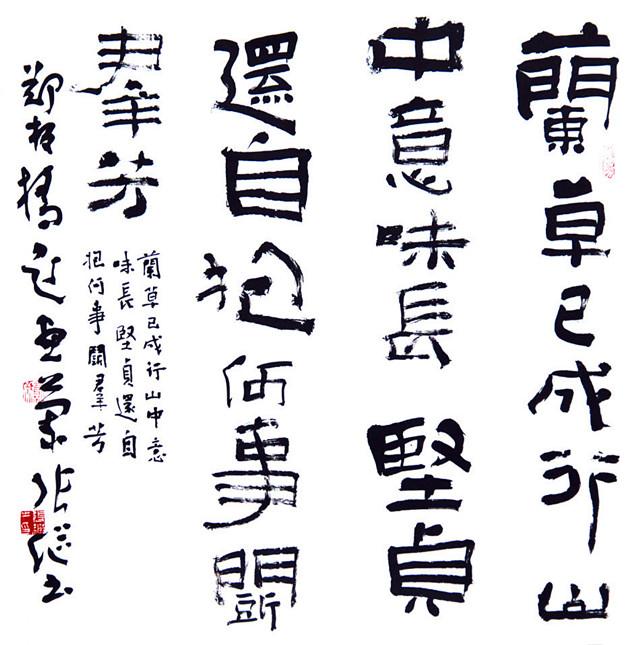 蘭草已成行山
中意味長堅貞
還自抱何事鬭
羣芳
蘭草已成行山中意
味長堅貞還自
抱何事鬭羣芳
鄭板橋題畫蘭張継书